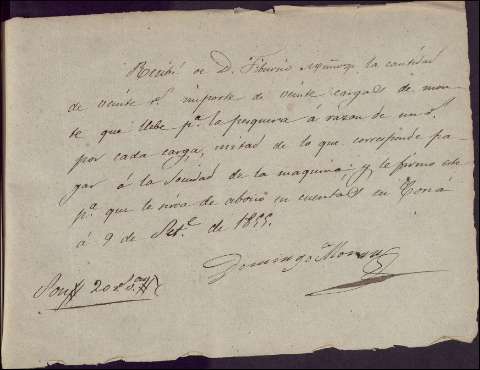 Recibí de D. Tiburcio Muñoz la cantidad
de veinte r.s importe de veinte cargas de mon-
te que llebe p.a la pesquera á razon de un r.l
por cada carga, mitad de lo que corresponde pa-
gar á la Socidad de la maquina: y le firmo este
p.a que le sirva de abono en cuentas en
á 9 de Set.e de 1855.
Domingo
Son 20 r.s